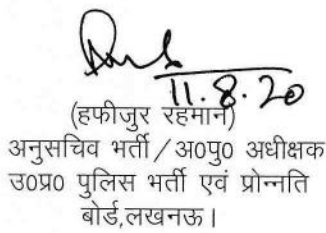 11.8.20
(हफीजुर रहमान)
अनुसचिव भर्ती/अ०पु० अधीक्षक
उ०प्र० पुलिस भर्ती एवं प्रोन्नति
बोर्ड,लखनऊ।